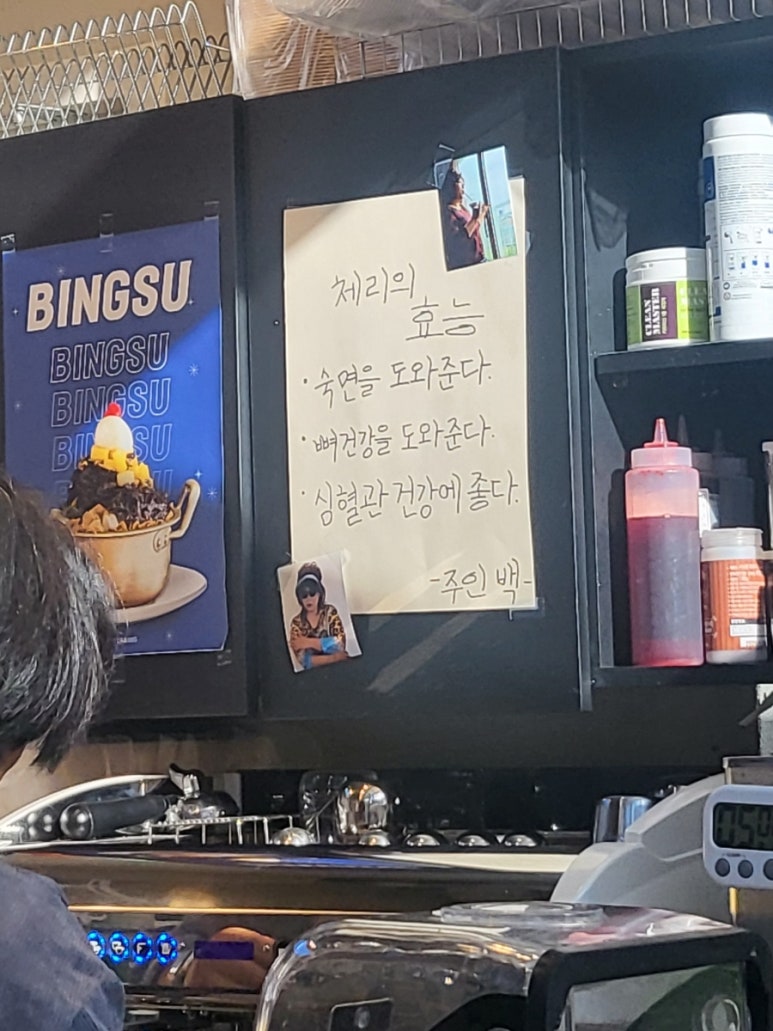 BINGSU
BINGSU
BINGSU
BINGSU
체리의
효능
· 숙면을 도와준다.
· 뼈건강을 도와준다.
· 심혈관 건강에 좋다.
-주인 백-
CLEAN
MASTER